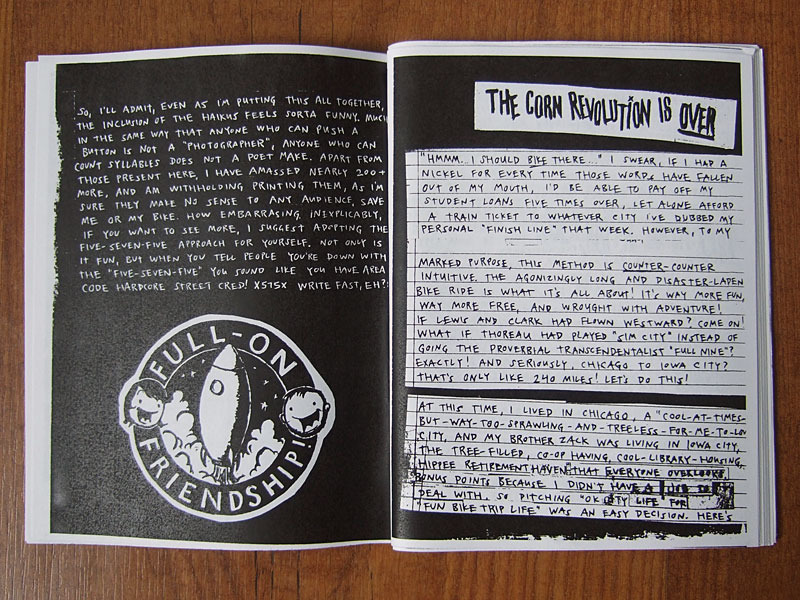 SO, I'LL ADMIT, EVEN AS I'M PUTTING THIS ALL TOGETHER,
THE INCLUSION OF THE HAIKUS FEELS SORTA FUNNY. MUCH
IN THE SAME WAY THAT ANYONE WHO CAN PUSH A
BUTTON IS NOT A "PHOTOGRAPHER", ANYONE WHO CAN
COUNT SYLLABLES DOES NOT A POET MAKE. APART FROM
THOSE PRESENT HERE, I HAVE AMASSED NEARLY 200+
MORE, AND AM WITHHOLDING PRINTING THEM, AS I'M
SURE THEY MAKE NO SENSE TO ANY AUDIENCE, SAVE
ME OR MY BIKE. HOW EMBARASING. INEXPLICABLY,
IF YOU WANT TO SEE MORE, I SUGGEST ADOPTING THE
FIVE-SEVEN-FIVE APPROACH FOR YOURSELF. NOT ONLY IS
IT FUN, BUT WHEN YOU TELL PEOPLE YOU'RE DOWN WITH
THE "FIVE-SEVEN-FIVE" YOU SOUND LIKE YOU HAVE AREA
CODE HARDCORE STREET CRED! X575X WRITE FAST, EH?!
FULL-ON
FRIENDSHIP!
THE CORN REVOLUTION IS OVER
"HMMM... I SHOULD BIKE THERE..." I SWEAR, IF I HAD A
NICKEL FOR EVERY TIME THOSE WORDS HAVE FALLEN
OUT OF MY MOUTH, I'D BE ABLE TO PAY OFF MY
STUDENT LOANS FIVE TIMES OVER, LET ALONE AFFORD
A TRAIN TICKET TO WHATEVER CITY I'VE DUBBED MY
PERSONAL "FINISH LINE" THAT WEEK. HOWEVER, TO MY
MARKED PURPOSE, THIS METHOD IS COUNTER-COUNTER
INTUITIVE. THE AGONIZINGLY LONG AND DISASTER-LADEN
BIKE RIDE IS WHAT IT'S ALL ABOUT! IT'S WAY MORE FUN,
WAY MORE FREE, AND WROUGHT WITH ADVENTURE!
IF LEWIS AND CLARK HAD FLOWN WESTWARD? COME ON!
WHAT IF THOREAU HAD PLAYED "SIM CITY" INSTEAD OF
GOING THE PROVERBIAL TRANSCENDENTALIST "FULL NINE"?
EXACTLY! AND SERIOUSLY, CHICAGO TO IOWA CITY?
THAT'S ONLY LIKE 240 MILES! LET'S DO THIS!
AT THIS TIME, I LIVED IN CHICAGO, A "COOL-AT-TIMES-
BUT-WAY-TOO-SPRAWLING-AND-TREELESS-FOR-ME-TO-LOV
CITY, AND MY BROTHER ZACK WAS LIVING IN IOWA CITY,
THE TREE-FILLED, CO-OP HAVING, COOL-LIBRARY-HOUSING,
HIPPEE RETIREMENT HAVEN THAT EVERYONE OVERLOOKS.
BONUS POINTS BECAUSE I DIDN'T HAVE A
DEAL WITH. SO PITCHING "OK CITY LIFE" FOR
"FUN BIKE TRIP LIFE" WAS AN EASY DECISION. HERE'S